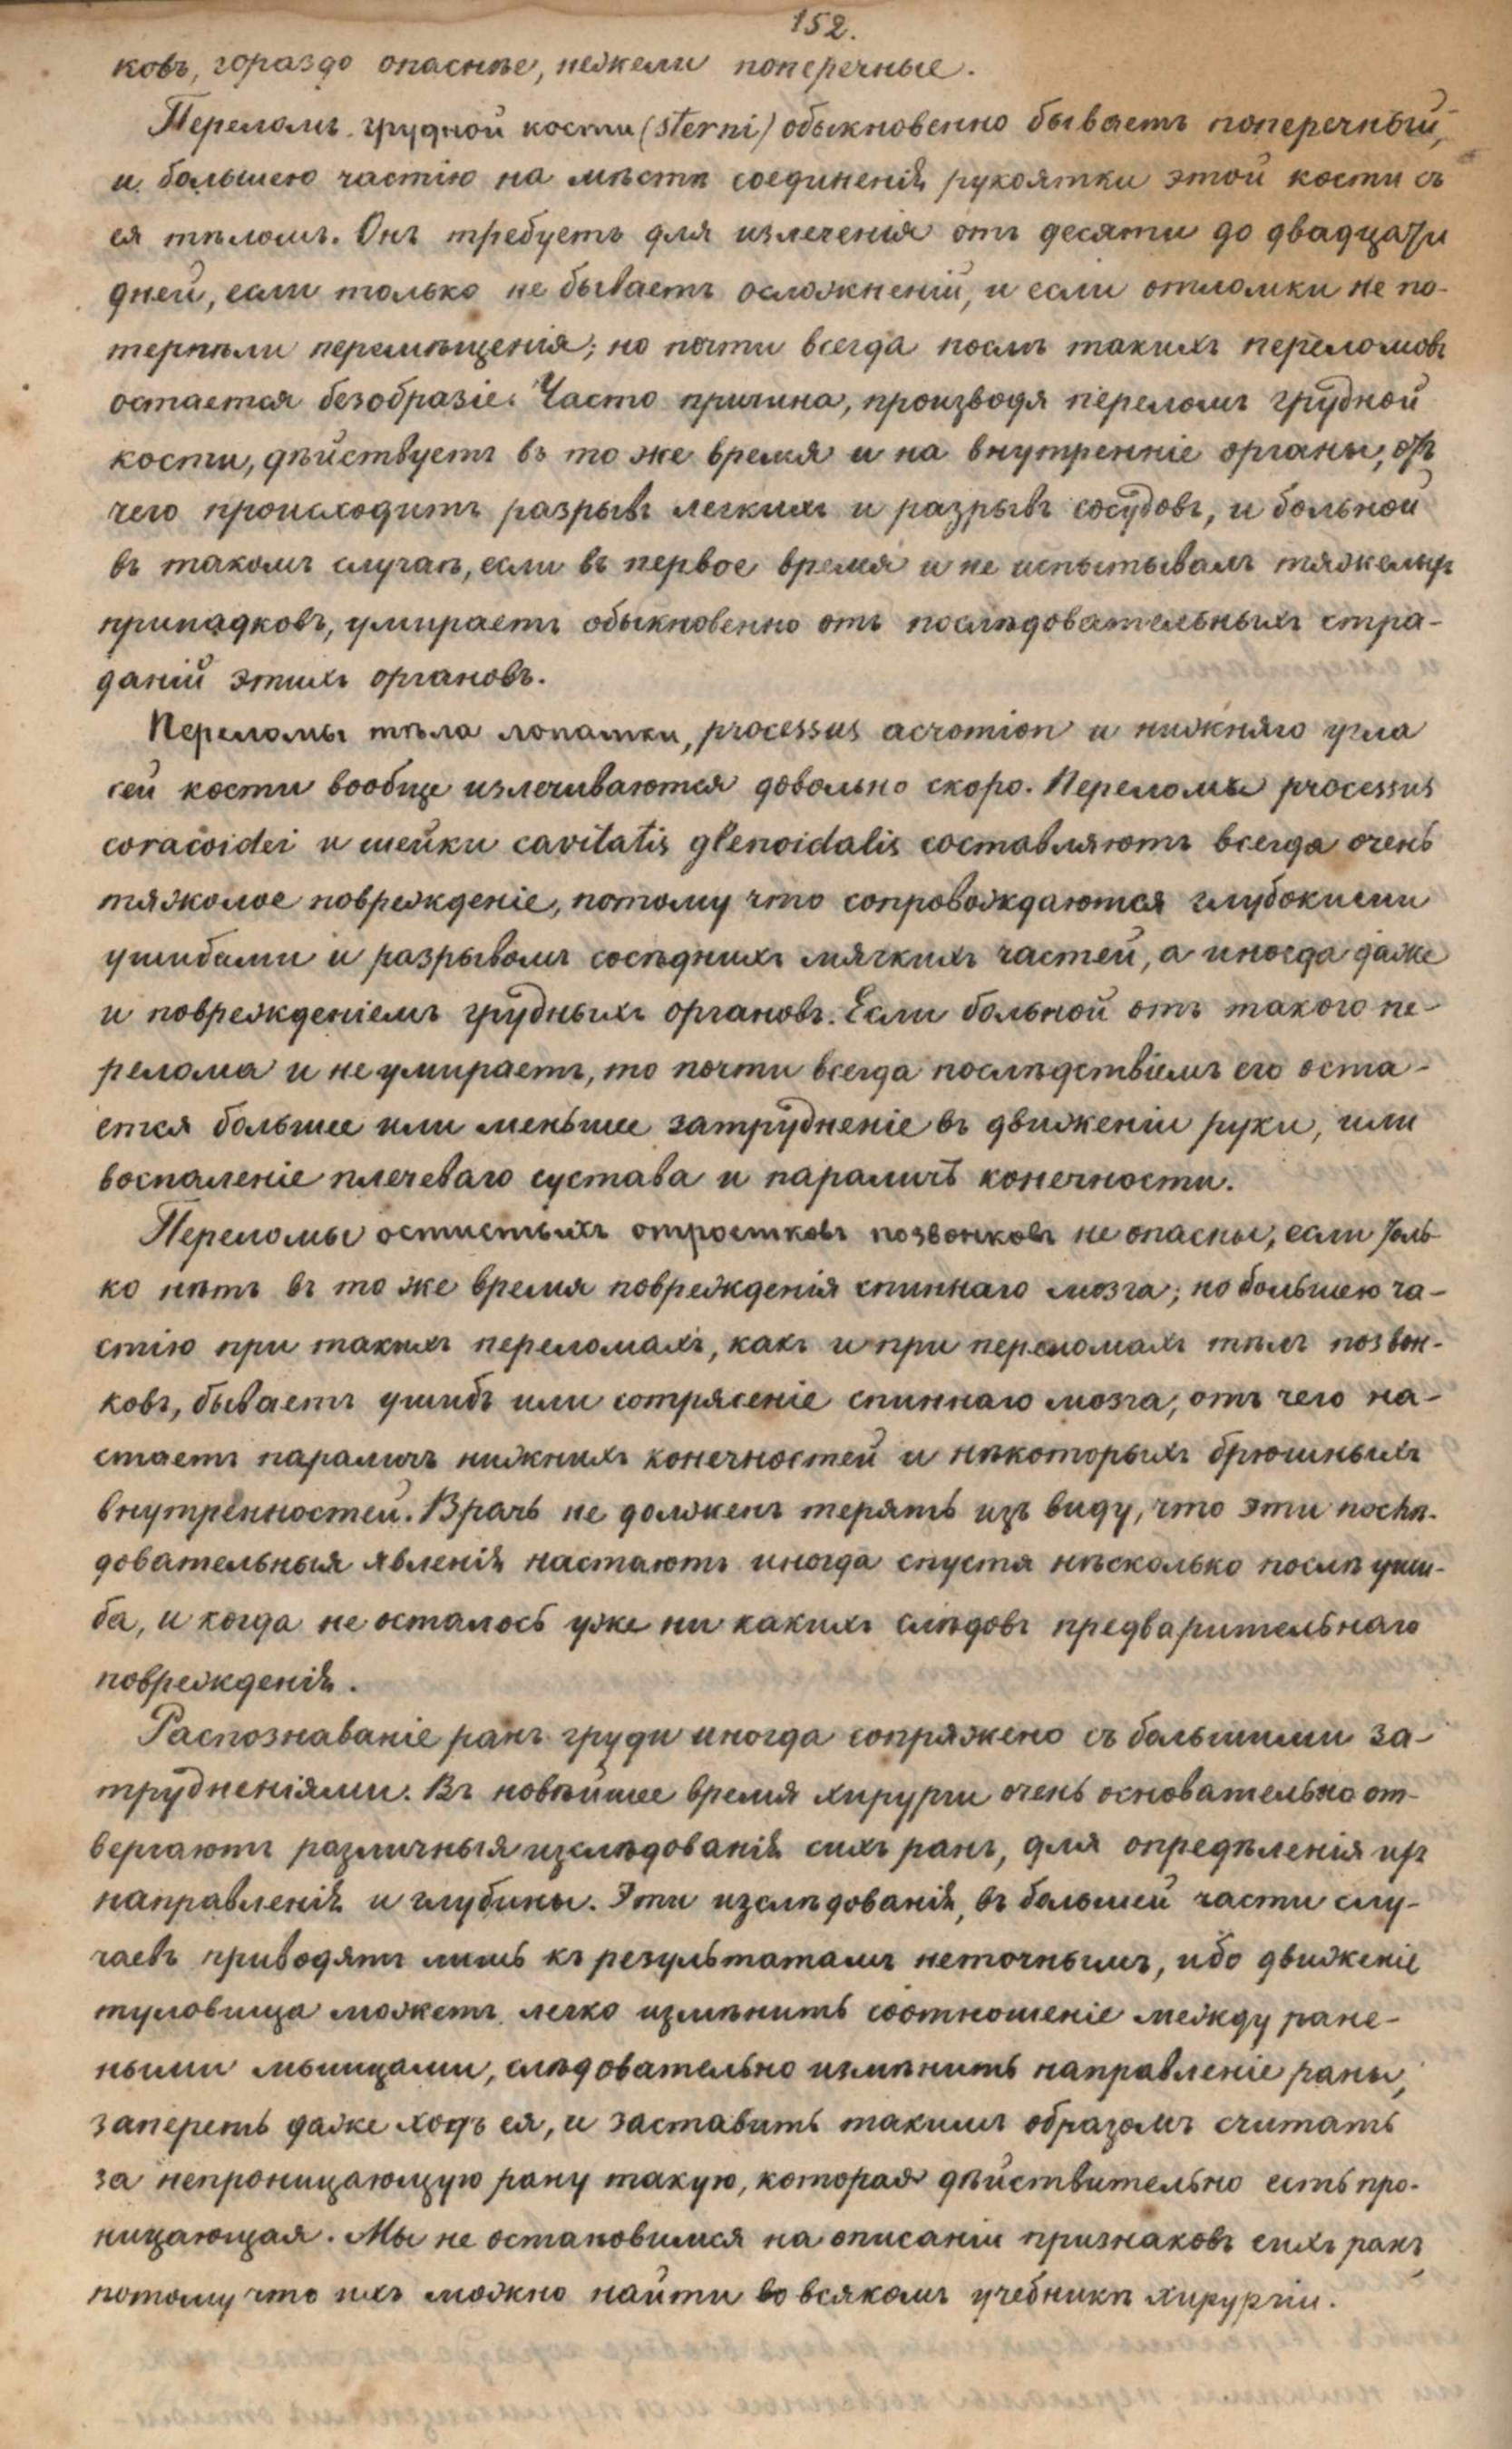 152.
ковъ, гораздо опаснѣе, нежели поперечные.
Переломъ грудной кости (sterni) обыкновенно бываетъ поперечный,
и большею частію на мѣстѣ соединенія рукоятки этой кости съ
ея тѣломъ. Онъ требуетъ для излеченія отъ десяти до двадцати
дней, если только не бываетъ осложненій, и если отломки не по-
терпѣли перемѣщенія; но почти всегда послѣ такихъ переломовъ
остается безобразіе. Часто причина, производя переломъ грудной
кости, дѣйствуетъ въ то же время и на внутренніе органы, отъ
чего происходитъ разрывъ легкихъ и разрывъ сосудовъ, и больной
въ такомъ случаѣ, если въ первое время и не испытывалъ тяжелыхъ
припадковъ, умираетъ обыкновенно отъ послѣдовательныхъ стра-
даній этихъ органовъ.
Переломы тѣла лопатки, processus acromion и нижняго угла
сей кости вообще излечиваются довольно скоро. Переломы processus
coracoidei и шейки cavitatis glenoidalis составляютъ всегда очень
тяжолое поврежденіе, потому что сопровождаются глубокими
ушибами и разрывомъ сосѣднихъ мягкихъ частей, а иногда даже
и поврежденіемъ грудныхъ органовъ. Если больной отъ такого пе-
релома и не умираетъ, то почти всегда послѣдствіемъ его оста-
ется большее или меньшее затрудненіе въ движеніи руки, или
воспаленіе плечеваго сустава и параличъ конечности.
Переломы остистыхъ отростковъ позвонковъ не опасны, если толь-
ко нѣтъ въ то же время поврежденія спиннаго мозга; но большею ча-
стію при такихъ переломахъ, какъ и при переломахъ тѣлъ позвон-
ковъ, бываетъ ушибъ или сотрясеніе спиннаго мозга, отъ чего на-
стаетъ параличъ нижнихъ конечностей и нѣкоторыхъ брюшныхъ
внутренностей. Врачь не долженъ терять изъ виду, что эти послѣ-
довательныя явленія настаютъ иногда спустя нѣсколько послѣ уши-
ба, и когда не осталось уже ни какихъ слѣдовъ предварительнаго
поврежденія.
Распознаваніе ранъ груди иногда сопряжено съ большими за-
трудненіями. Въ новѣйшее время хирурги очень основательно от-
вергаютъ различныя изслѣдованія сихъ ранъ, для опредѣленія ихъ
направленія и глубины. Эти изслѣдованія, въ большей части слу-
чаевъ приводятъ лишь къ результатамъ неточнымъ, ибо движеніе
туловища можетъ легко измѣнить соотношеніе между ране-
ными мышцами, слѣдовательно измѣнить направленіе раны,
запереть даже ходъ ея, и заставить такимъ образомъ считать
за непроницающую рану такую, которая дѣйствительно есть про-
ницающая. Мы не остановимся на описаніи признаковъ сихъ ранъ,
потому что ихъ можно найти во всякомъ учебникѣ хирургіи.